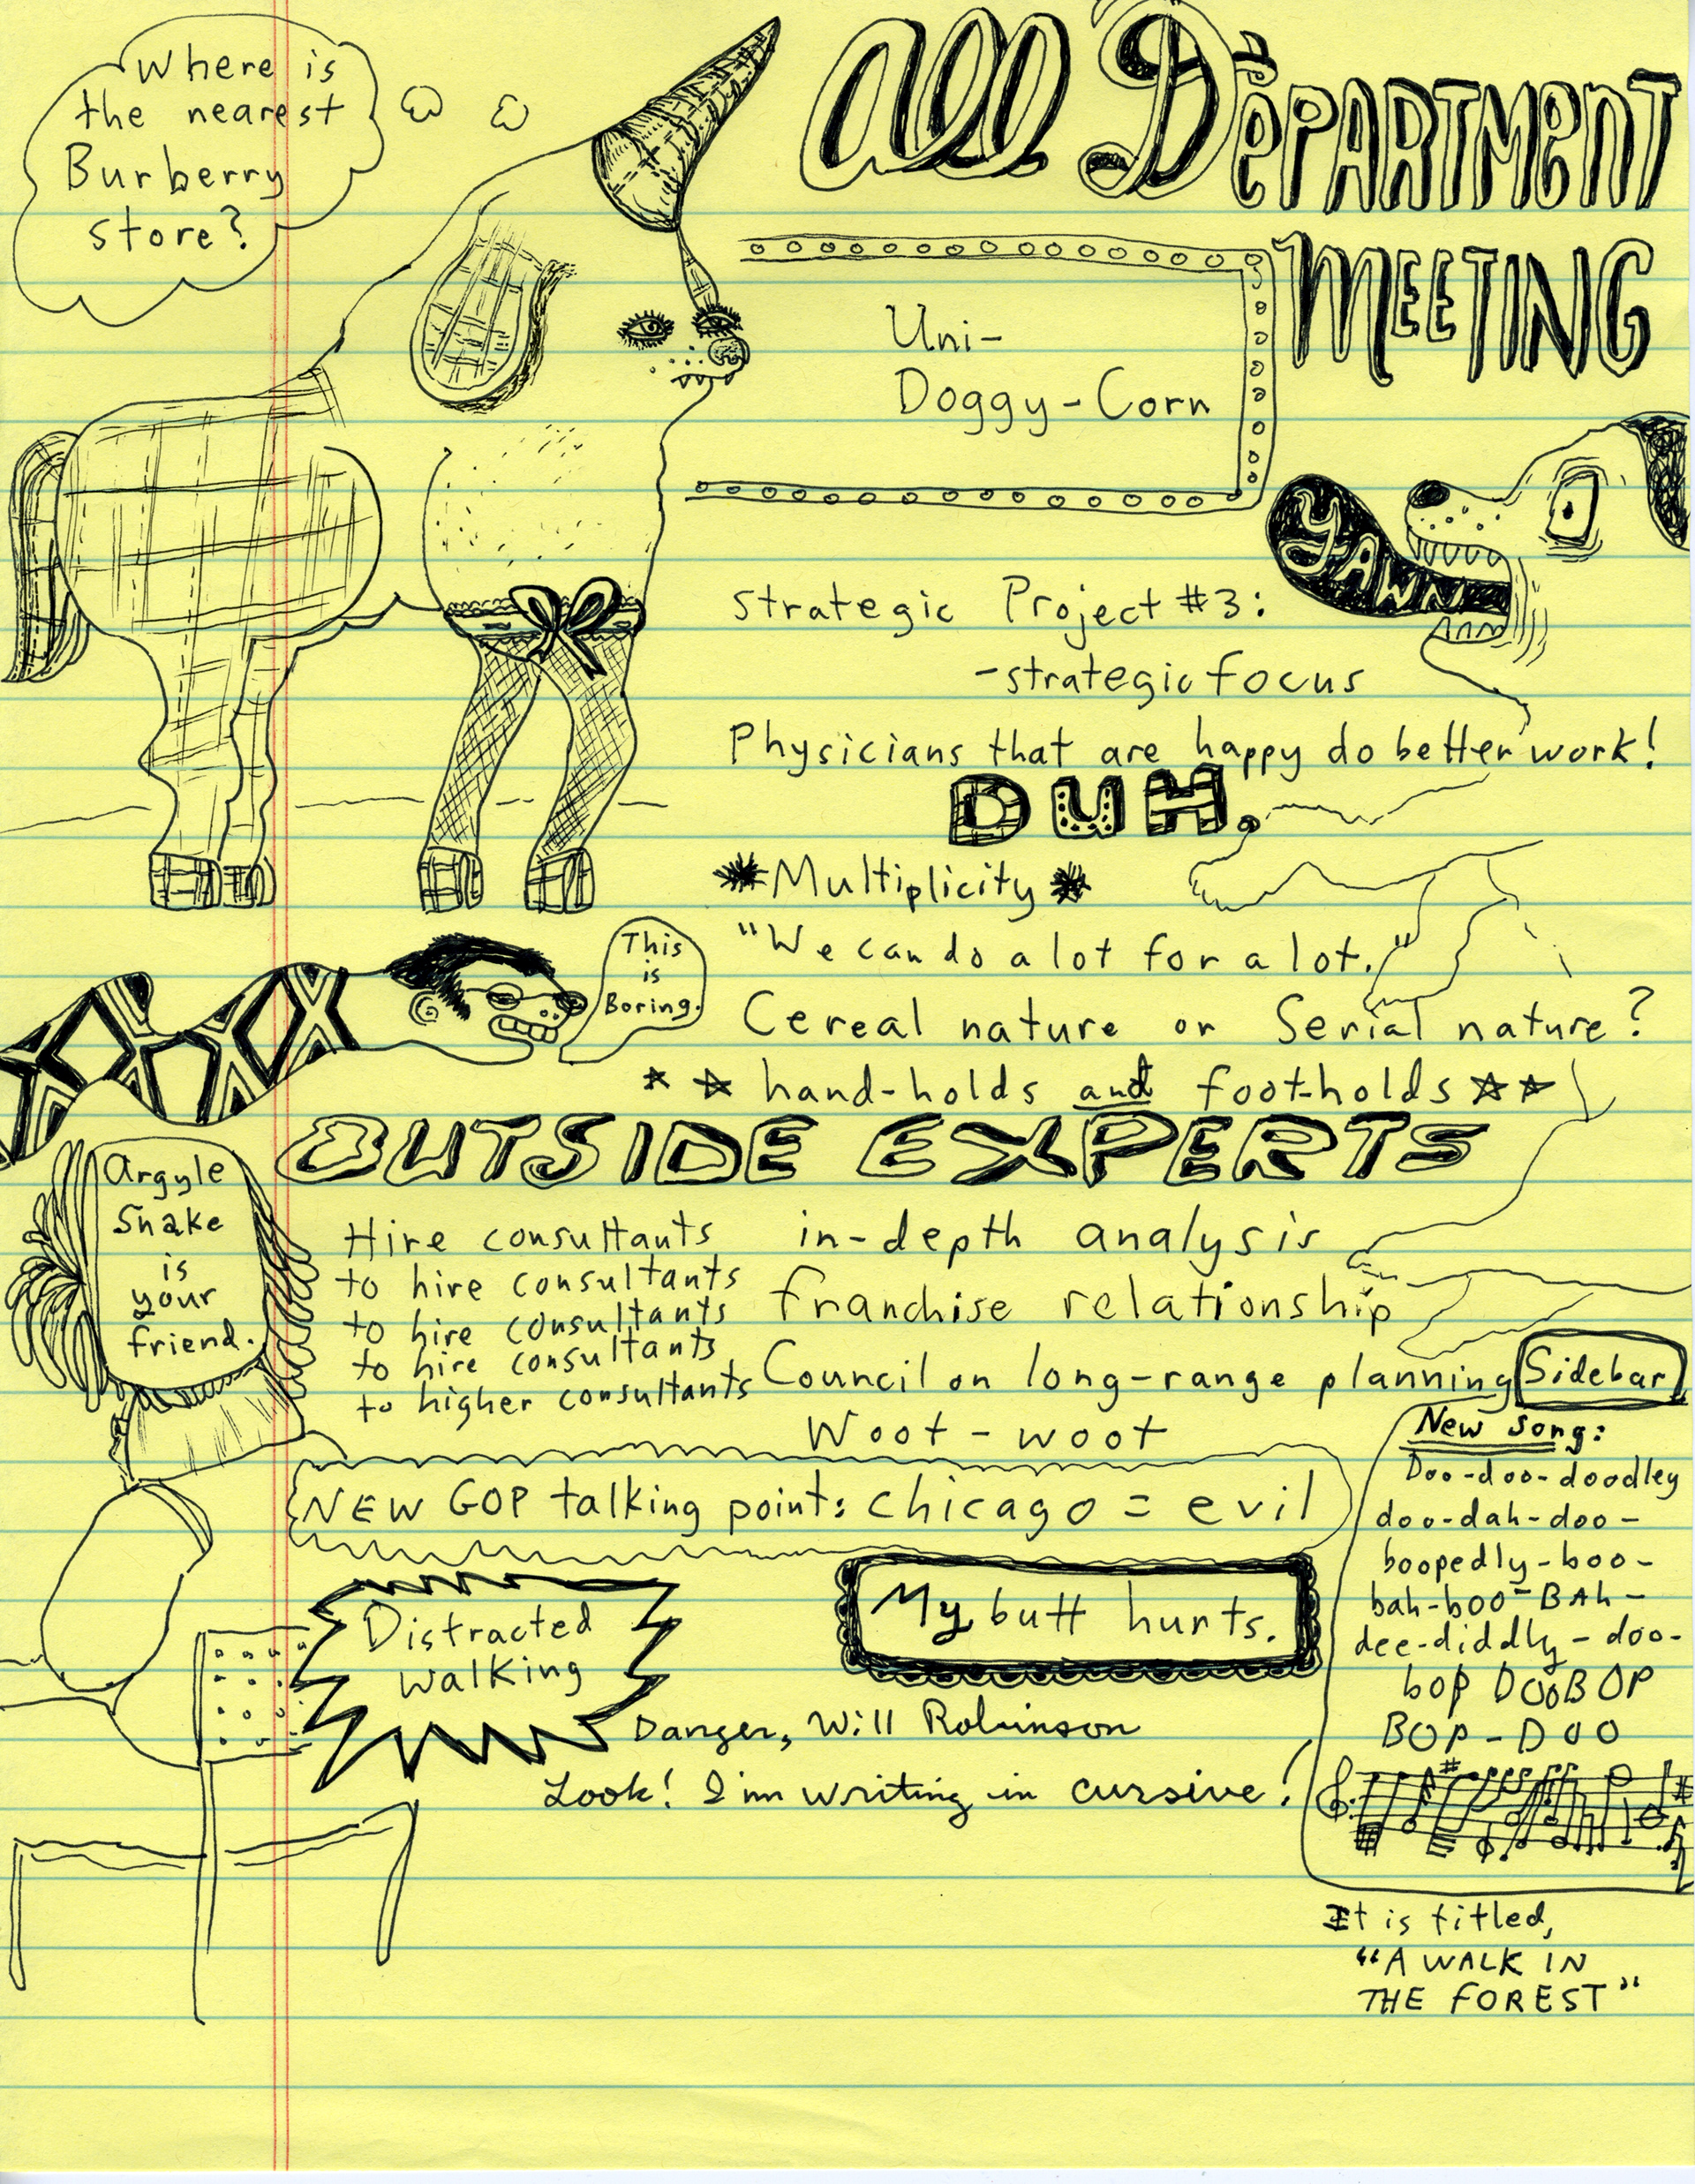 Where is
the nearest
Burberry
store?
All Department
Meeting
Uni-
Doggy-Corn
YAWN
strategic Project #3:
-strategic focus
Physicians that are happy do better work!
DUH.
*Multiplicity*
"We can do a lot for a lot."
This
is
Boring.
Cereal nature or Serial nature?
hand-holds and foot-holds
OUTSIDE EXPERTS
Argyle
Snake
is
your
friend.
Hire consultants
to hire consultants
to hire consultants
to hire consultants
to higher consultants
in-depth analysis
franchise relationship
Council on long-range planning
Woot-woot
Sidebar
New song:
Doo-doo-doodley
doo-dah-doo-
boopedly-boo-
bah-boo-BAh-
dee-diddly-doo-
bop DOOBOP
BOP-DOO
It is titled,
"A WALK IN
THE FOREST"
NEW GOP talking point: Chicago = evil
My butt hurts.
Distracted
walking
Danger, Will Robinson
Look! I'm writing in cursive!